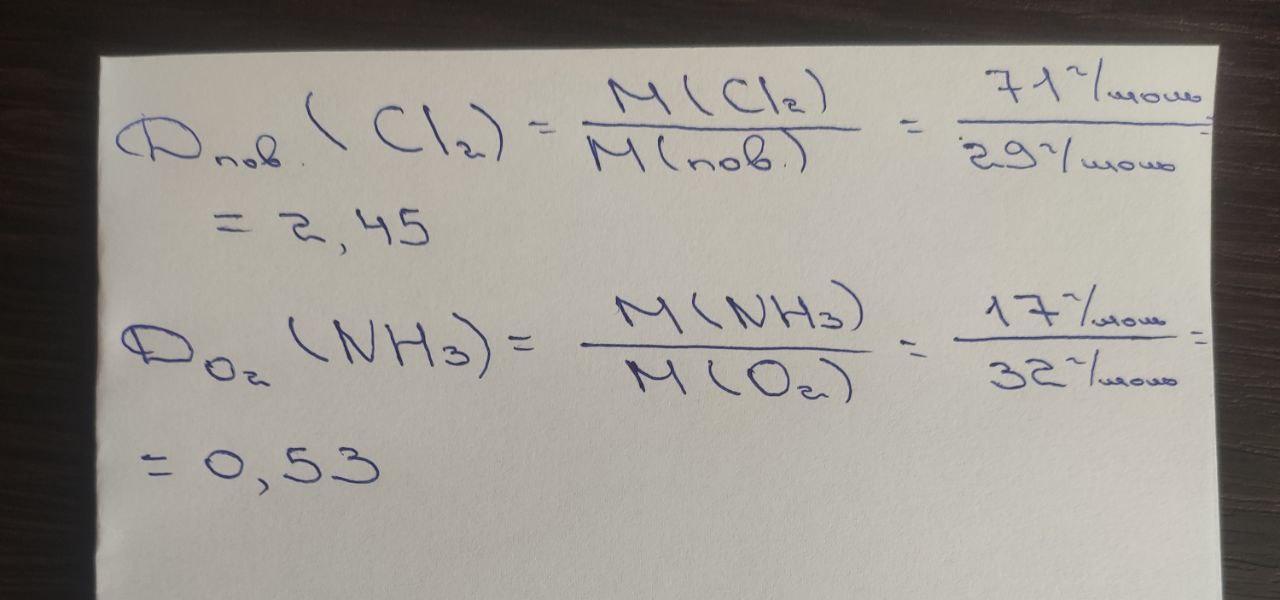 Dпов. (Cl₂) = M(Cl₂) / M(пов.) = 71 г/моль / 29 г/моль =
= 2,45
D O₂ (NH₃) = M(NH₃) / M(O₂) = 17 г/моль / 32 г/моль =
= 0,53